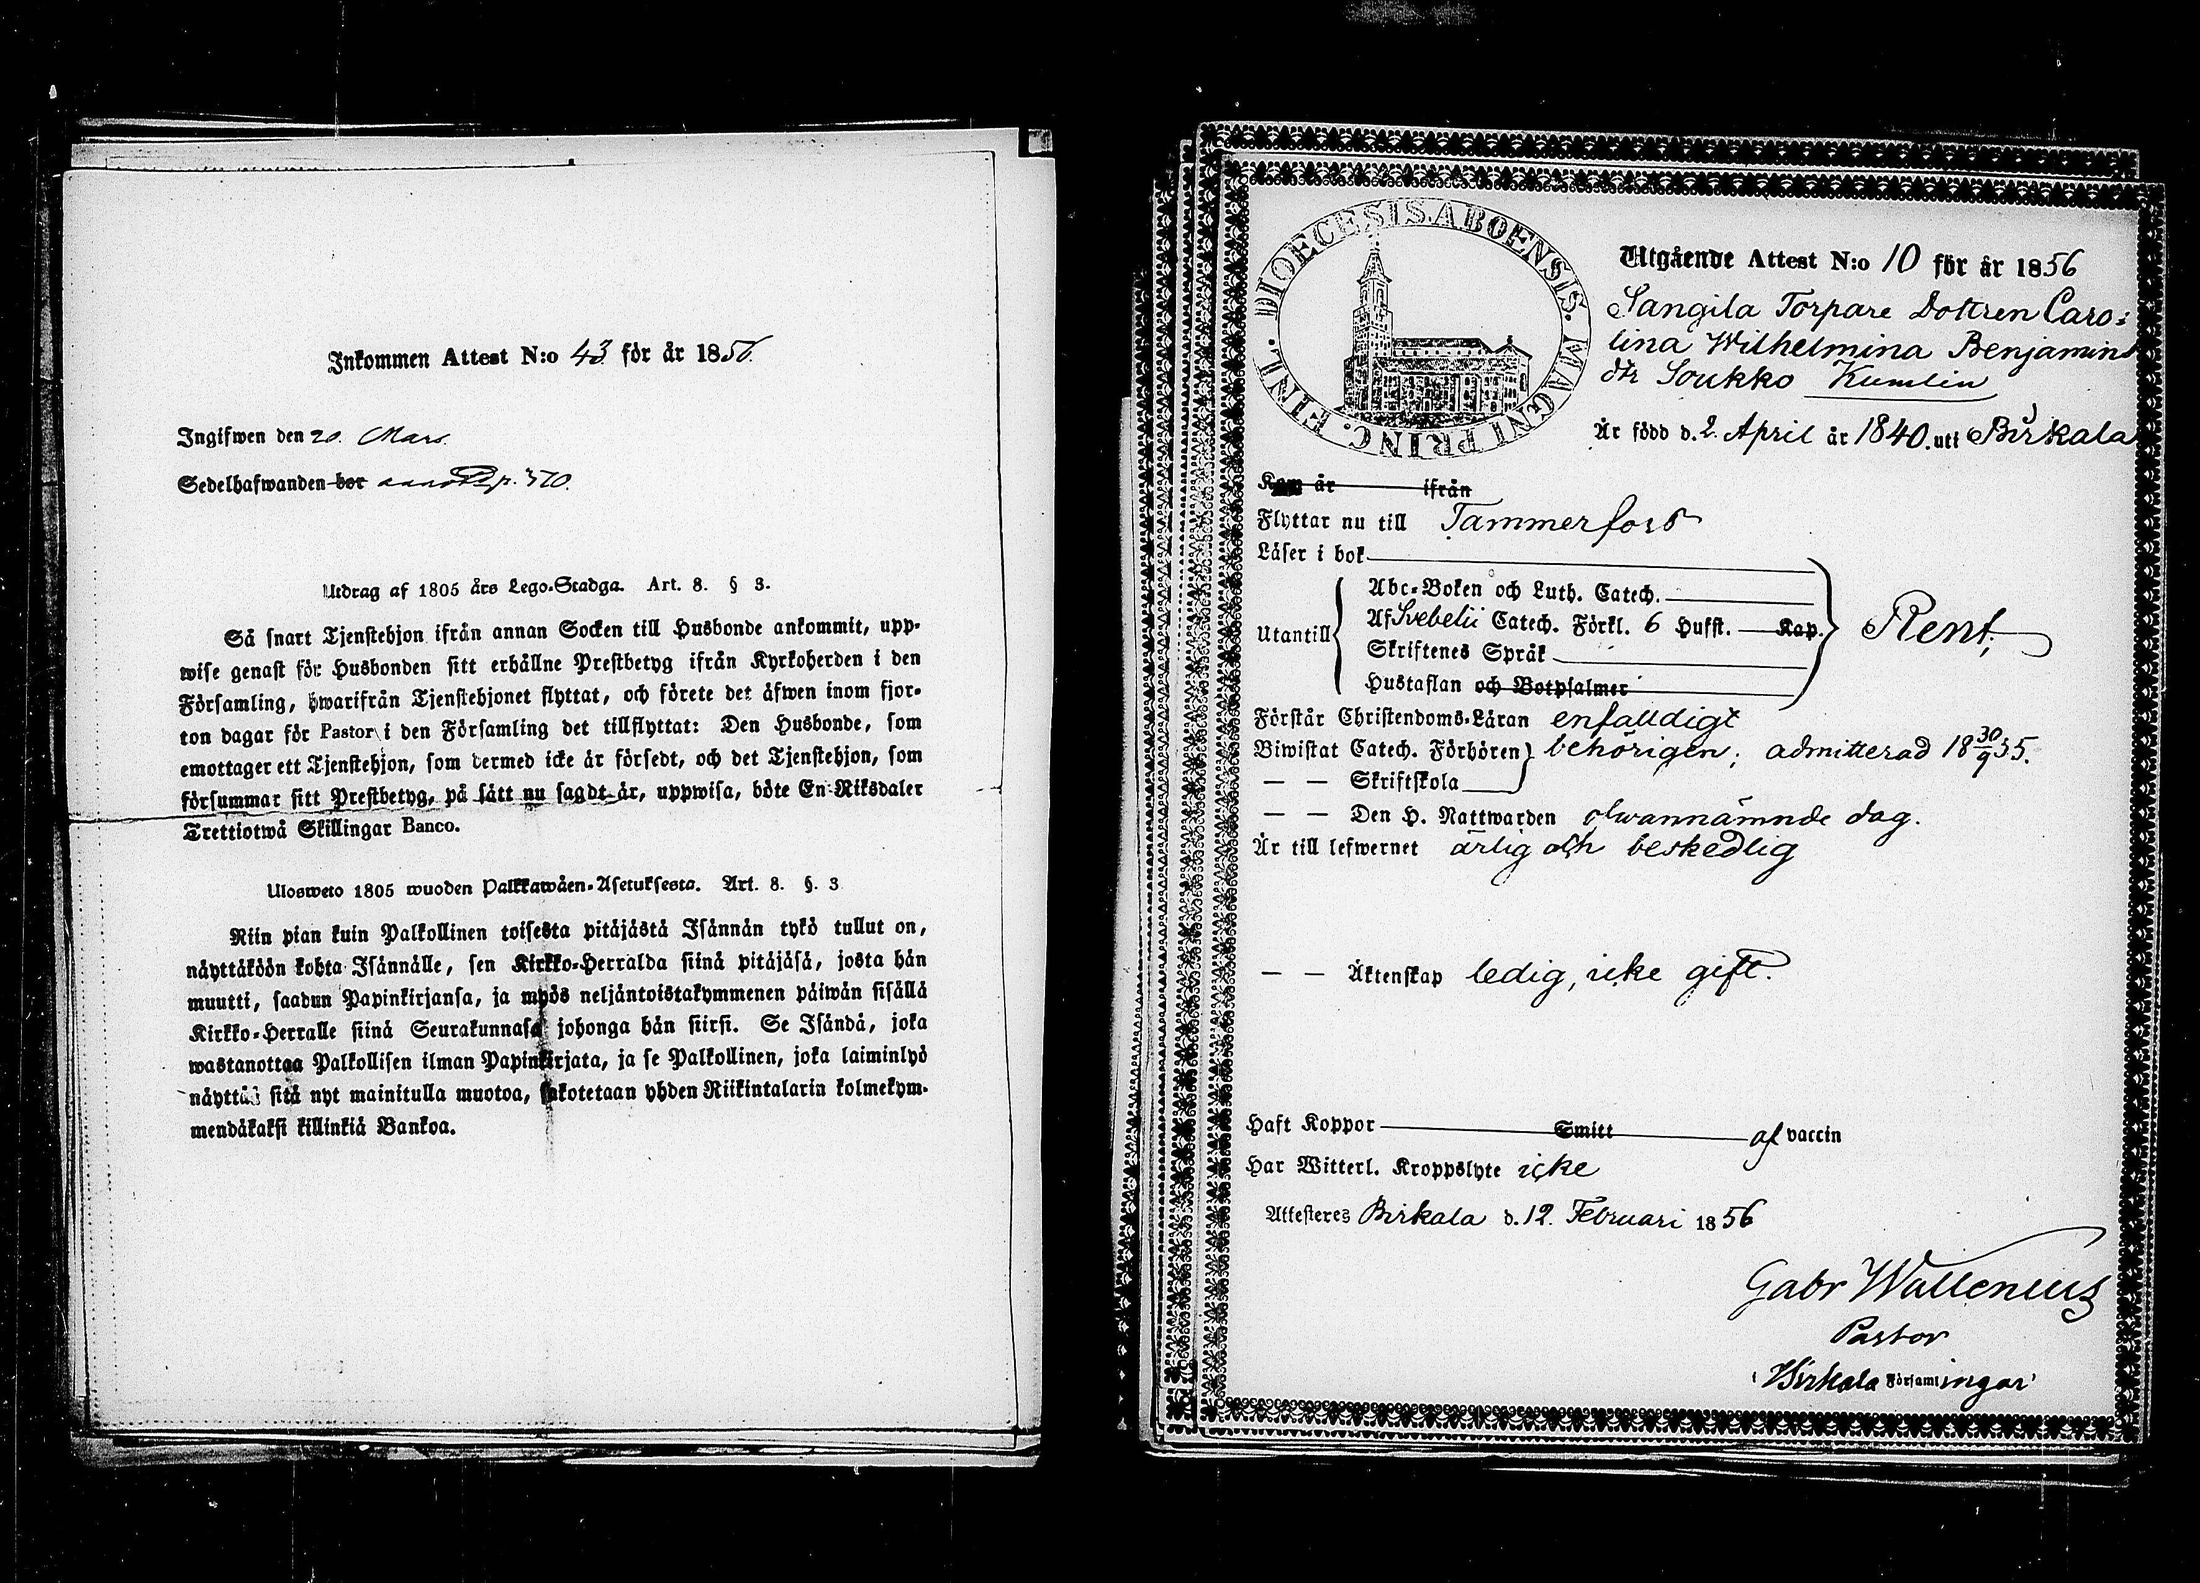 Inkommen Attest N:o 43 för år 1856.
Ingifwen den 20. Mars.
Sedelhafwanden bor
Utdrag af 1805 års Lego-Stadga. Art. 8. § 3.
Så snart Tjenstehjon ifrån annan Socken till Husbonde ankommit, upp-
wise genast för Husbonden sitt erhållne Prestbetyg ifrån Kyrkoherden i den
Församling, hwarifrån Tjenstehjonet flyttat, och förete det äfwen inom fjor-
ton dagar för Pastor i den Församling det tillflyttat: Den Husbonde, som
emottager ett Tjenstehjon, som dermed icke är försedt, och det Tjenstehjon, som
försummar sitt Prestbetyg, på sätt nu sagdt är, uppwisa, böte En Riksdaler
Trettiotwå Skillingar Banco.
Ulosweto 1805 wuoden Palkkawäen-Asetuksesta. Art. 8. §. 3
Niin pian kuin Palkollinen toisesta pitäjästä Isännän tykö tullut on,
näyttäköön kohta Isännälle, sen Kirkko-Herralda siinä pitäjäsä, josta hän
muutti, saadun Papinkirjansa, ja myös neljäntoistakymmenen päiwän sisällä
Kirkko-Herralle siinä Seurakunnasa johonga hän siirsi. Se Isändä, joka
wastanottaa Palkollisen ilman Papinkirjata, ja se Palkollinen, joka laiminlyö
näyttää sitä nyt mainitulla muotoa, sakotetaan yhden Riikintalarin kolmekym-
mendäkaksi killinkiä Bankoa.
DIOECESIS. ABOENSIS. MAGNI PRINC. FINL.
Utgående Attest N:o 10 för år 1856
Sangila Torpare Dottren Caro-
lina Wilhelmina Benjamins
dtr Soukko Kumlin
Är född d. 2. April år 1840. uti Birkala
Kom år ifrån
Flyttar nu till Tammerfors
Läser i bok
Abc-Boken och Luth. Catech.
Utantill Af Svebelii Catech. Förkl. 6 Hufst. Kap. Rent,
Skriftenes Språk
Hustaflan och Botpsalmer
Förstår Christendoms-Läran enfaldigt
Biwistat Catech. Förhören behörigen; admitterad 18 30/9 55.
— — Skriftskola
— — Den H. Nattwarden ofwannämnde dag.
Är till lefwernet ärlig och beskedlig
— — Äktenskap ledig, icke gift.
Haft Koppor Smitt af vaccin
Har Witterl. Kroppslyte icke
Attesteres Birkala d. 12. Februari 1856
Gabr Wallenius
Pastor
i Birkala Församlingar